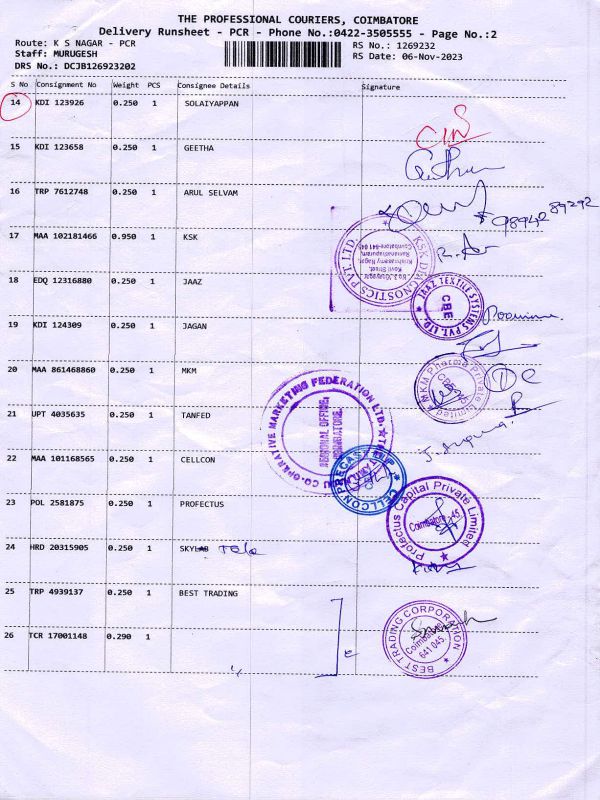 THE PROFESSIONAL COURIERS, COIMBATORE
Delivery Runsheet - PCR - Phone No.:0422-3505555 - Page No.:2
Route: K S NAGAR - PCR RS No.: 1269232
Staff: MURUGESH RS Date: 06-Nov-2023
DRS No.: DCJB126923202
S No Consignment No Weight PCS Consignee Details Signature
14 KDI 123926 0.250 1 SOLAIYAPPAN
15 KDI 123658 0.250 1 GEETHA
16 TRP 7612748 0.250 1 ARUL SELVAM
17 MAA 102181466 0.950 1 KSK
KSK DIAGNOSTICS PVT. LTD.
18 EDQ 12316880 0.250 1 JAAZ
JAAZ TEXTILE SYSTEMS PVT. LTD.
CBE
19 KDI 124309 0.250 1 JAGAN
20 MAA 861468860 0.250 1 MKM
MKM Pharma Private Limited
21 UPT 4035635 0.250 1 TANFED
CO-OPERATIVE MARKETING FEDERATION LTD.
REGIONAL OFFICE,
COIMBATORE.
22 MAA 101168565 0.250 1 CELLCON
CELLCON PRECAST
23 POL 2581875 0.250 1 PROFECTUS
Profectus Capital Private Limited
Coimbatore -45.
24 HRD 20315905 0.250 1 SKYLAB
25 TRP 4939137 0.250 1 BEST TRADING
BEST TRADING CORPORATION
Coimbatore
641 045.
26 TCR 17001148 0.290 1